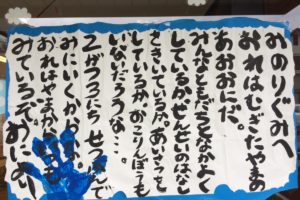 みのりぐみへ
おれはむぎたやまの
あおおにだ。
みんなともだちとなかよく
しているか。せんせいのはなし
きいているか。あいさつを
しているか。おこりんぼうも
いないだろうな…。
2がつ3にち せつぶん
みにいくからな。
おれはやまからいつも
みているぞ。おにより